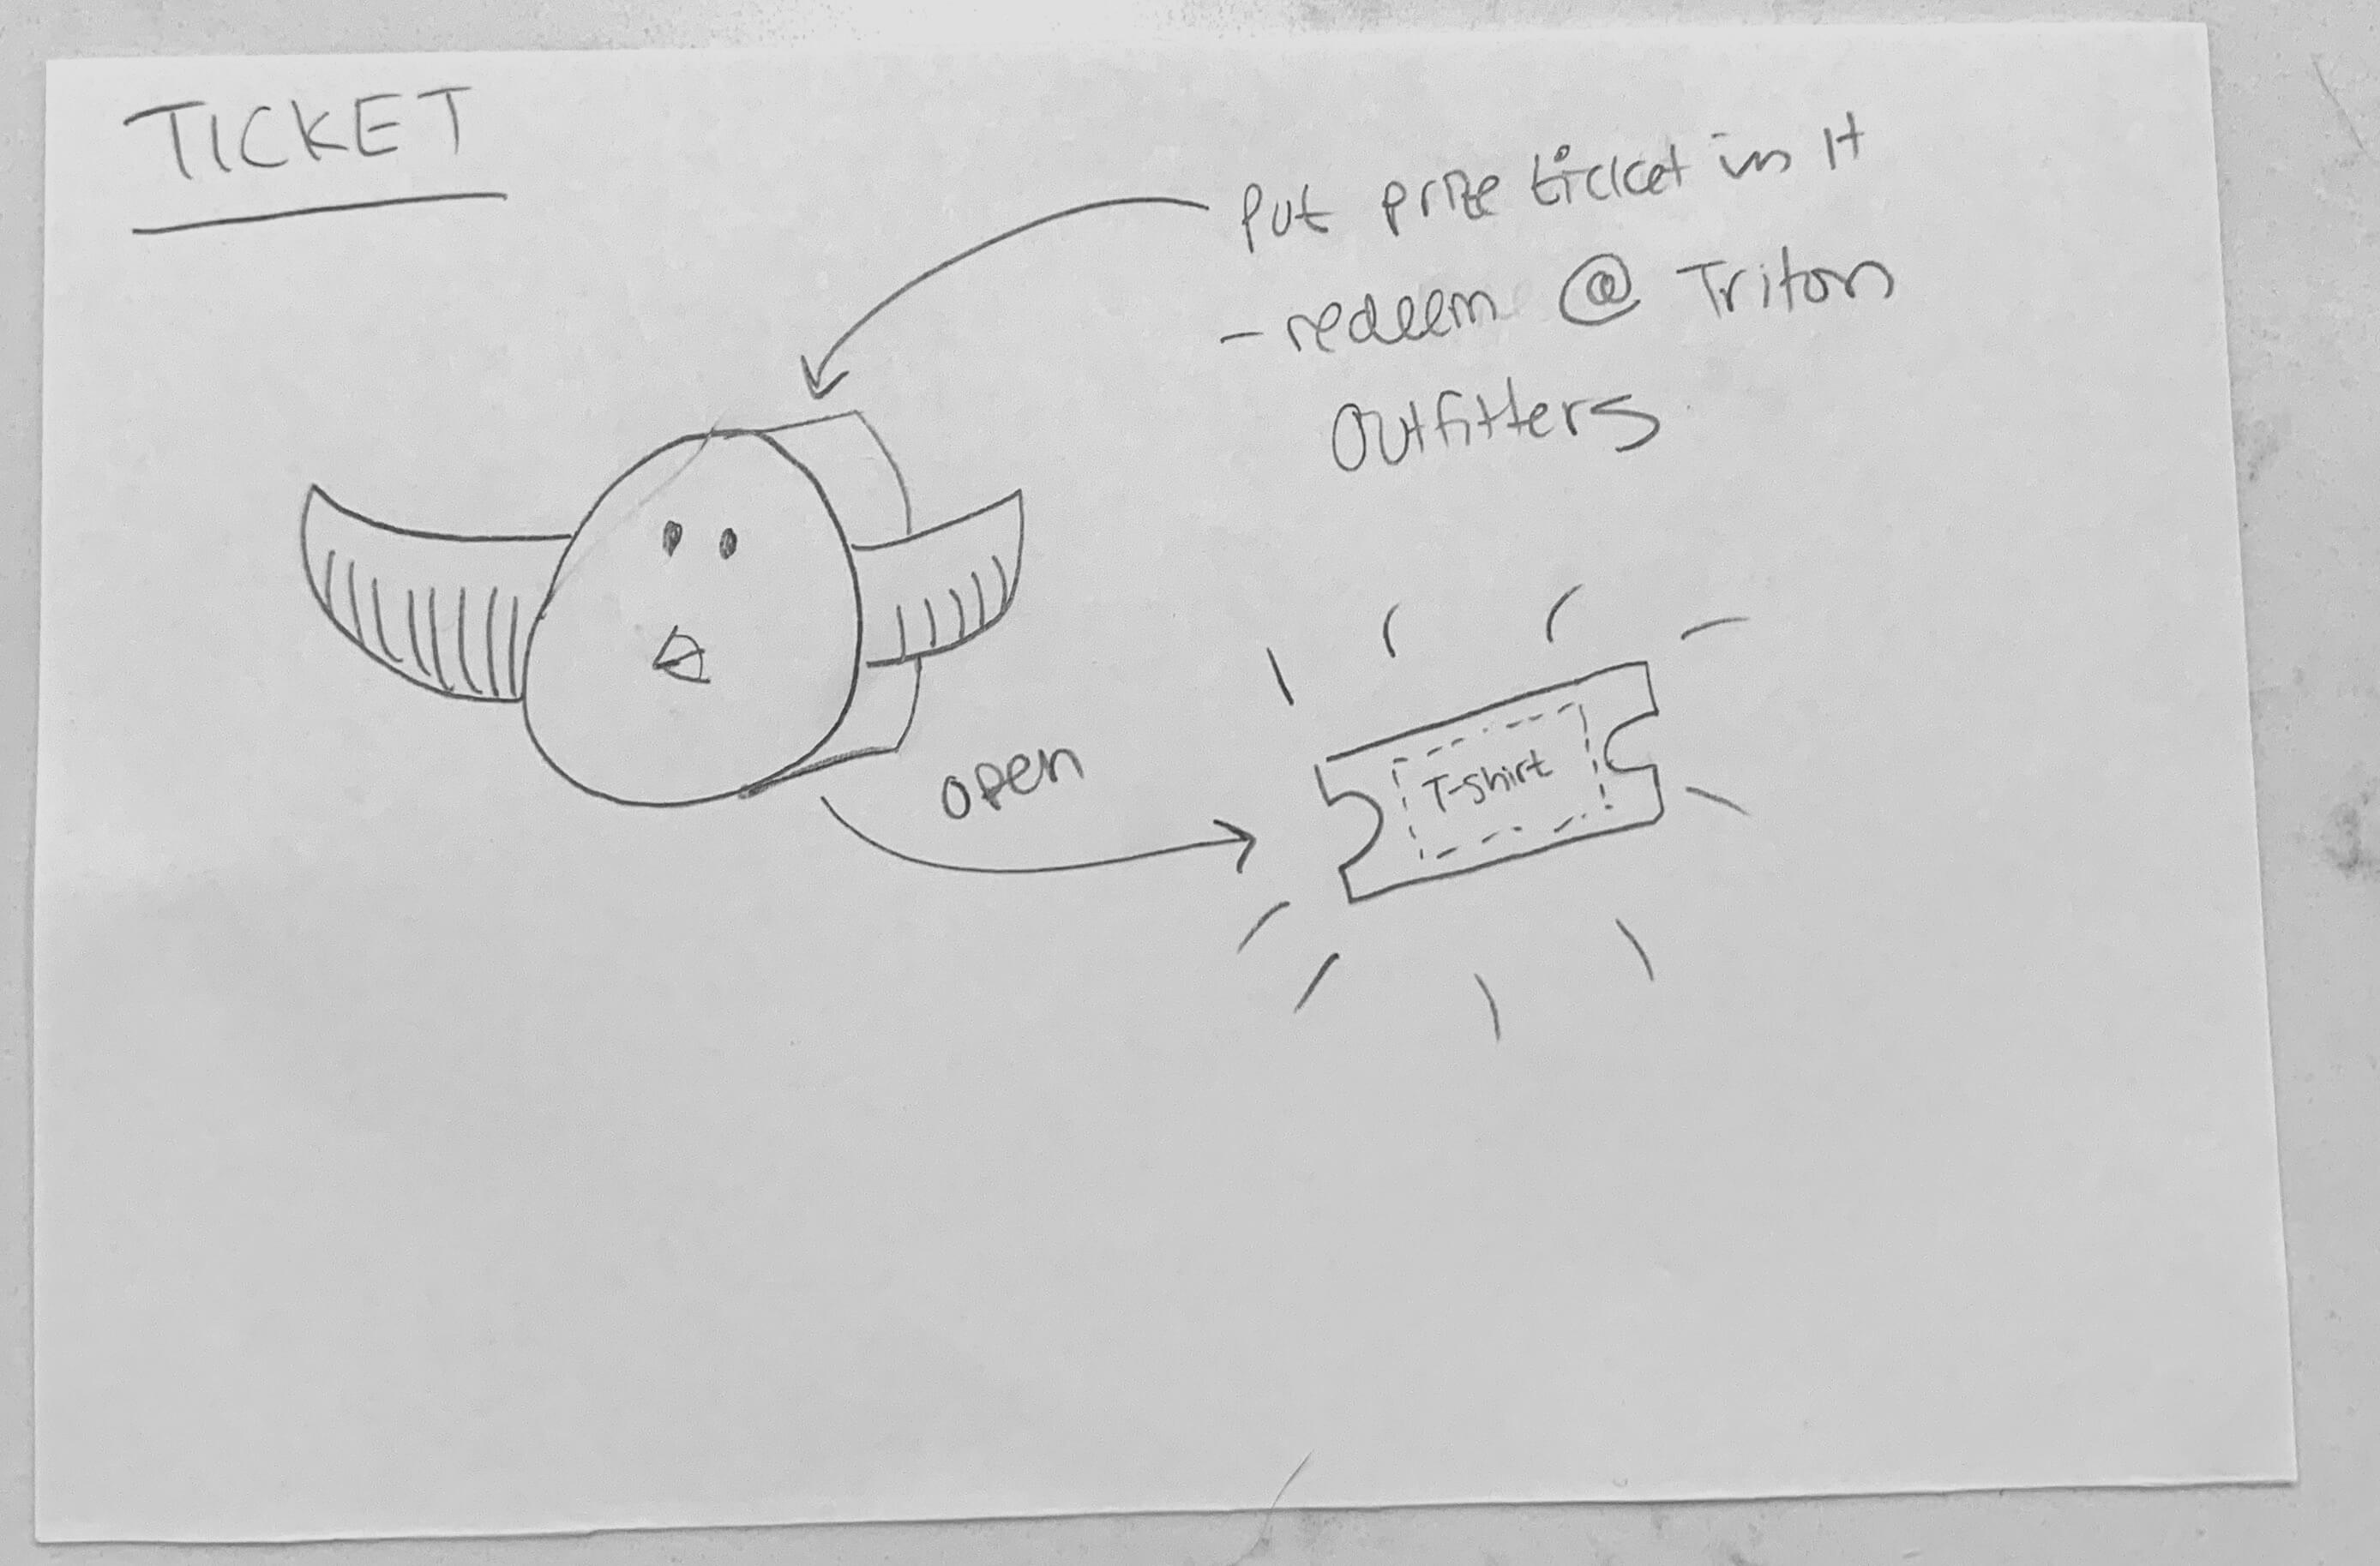 TICKET
Put prize ticket in it
- redeem @ Triton
Outfitters
open
T-shirt